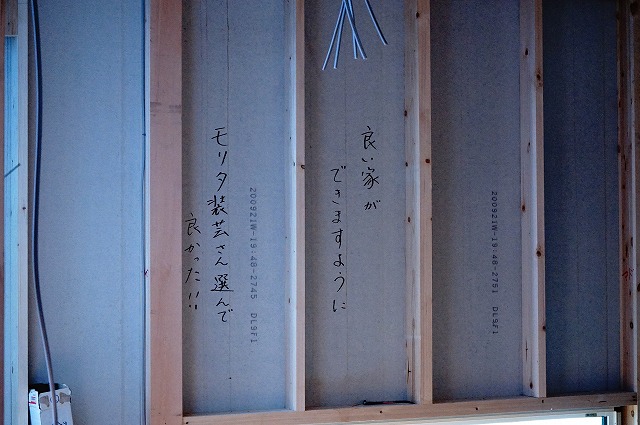 良い家が
できますように
モリタ装芸さん選んで
良かった!!
200921W-19:48-2745 DL9F1
200921W-19:48-2751 DL9F1